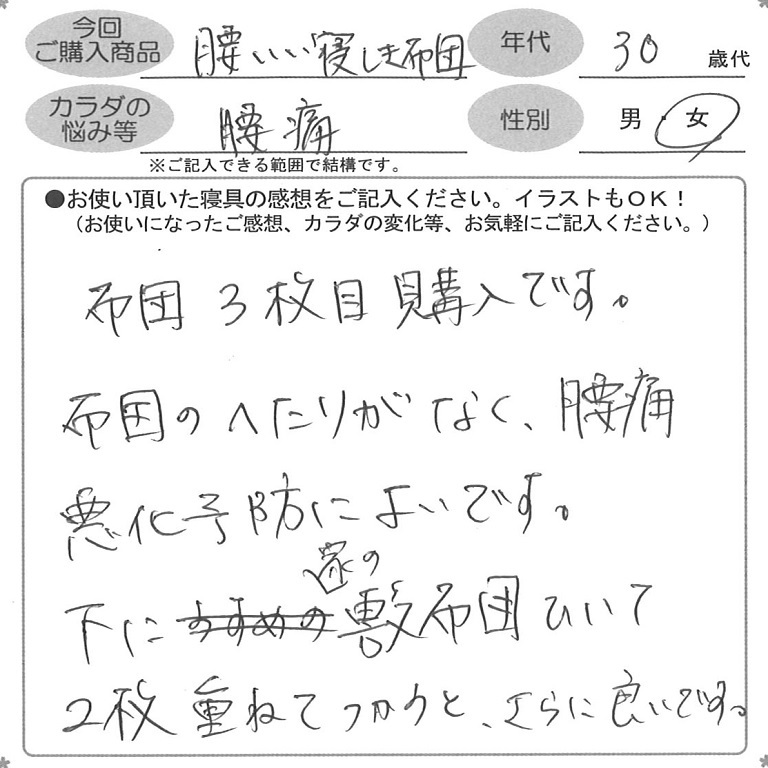 今回
ご購入商品 腰いい寝しき布団 年代 30 歳代
カラダの
悩み等 腰痛 性別 男・女
※ご記入できる範囲で結構です。
●お使い頂いた寝具の感想をご記入ください。イラストもOK!
(お使いになったご感想、カラダの変化等、お気軽にご記入ください。)
布団 3枚目 購入です。
布団のへたりがなく、腰痛
悪化予防によいです。
下に すすめの 敷布団ひいて
2枚 重ねてつかうと、さらに良いです。